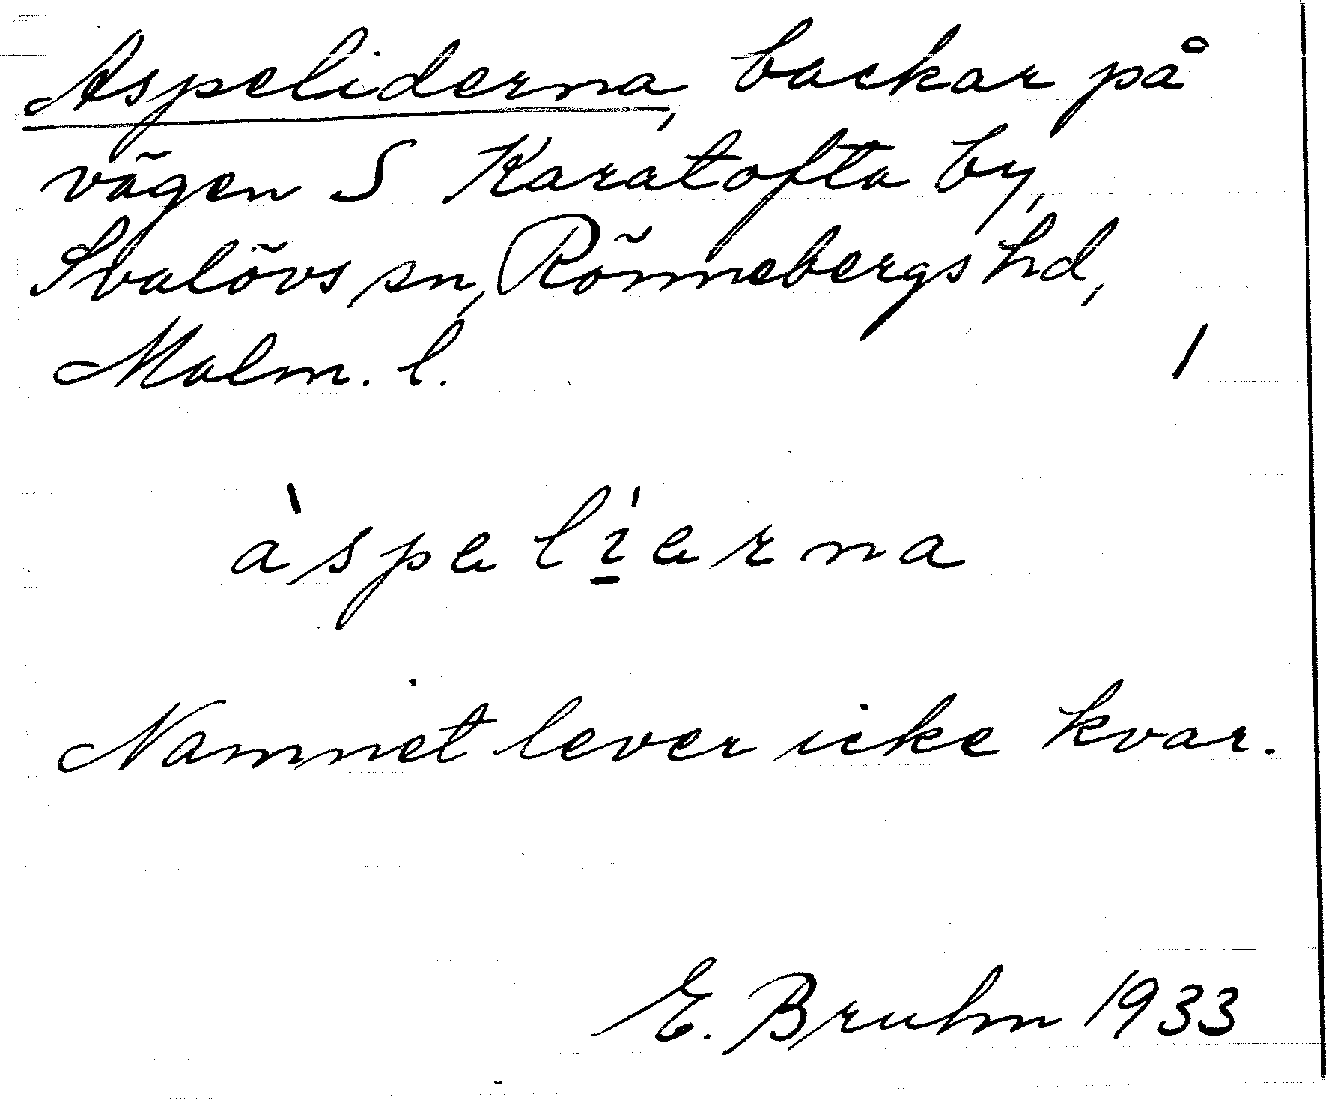 Aspeliderna, backar på
vägen S Karatofta by,
Svalövs sn, Rönnebergs hd,
Malm. l.
1
àspelíerna
Namnet lever icke kvar.
E. Bruhn 1933